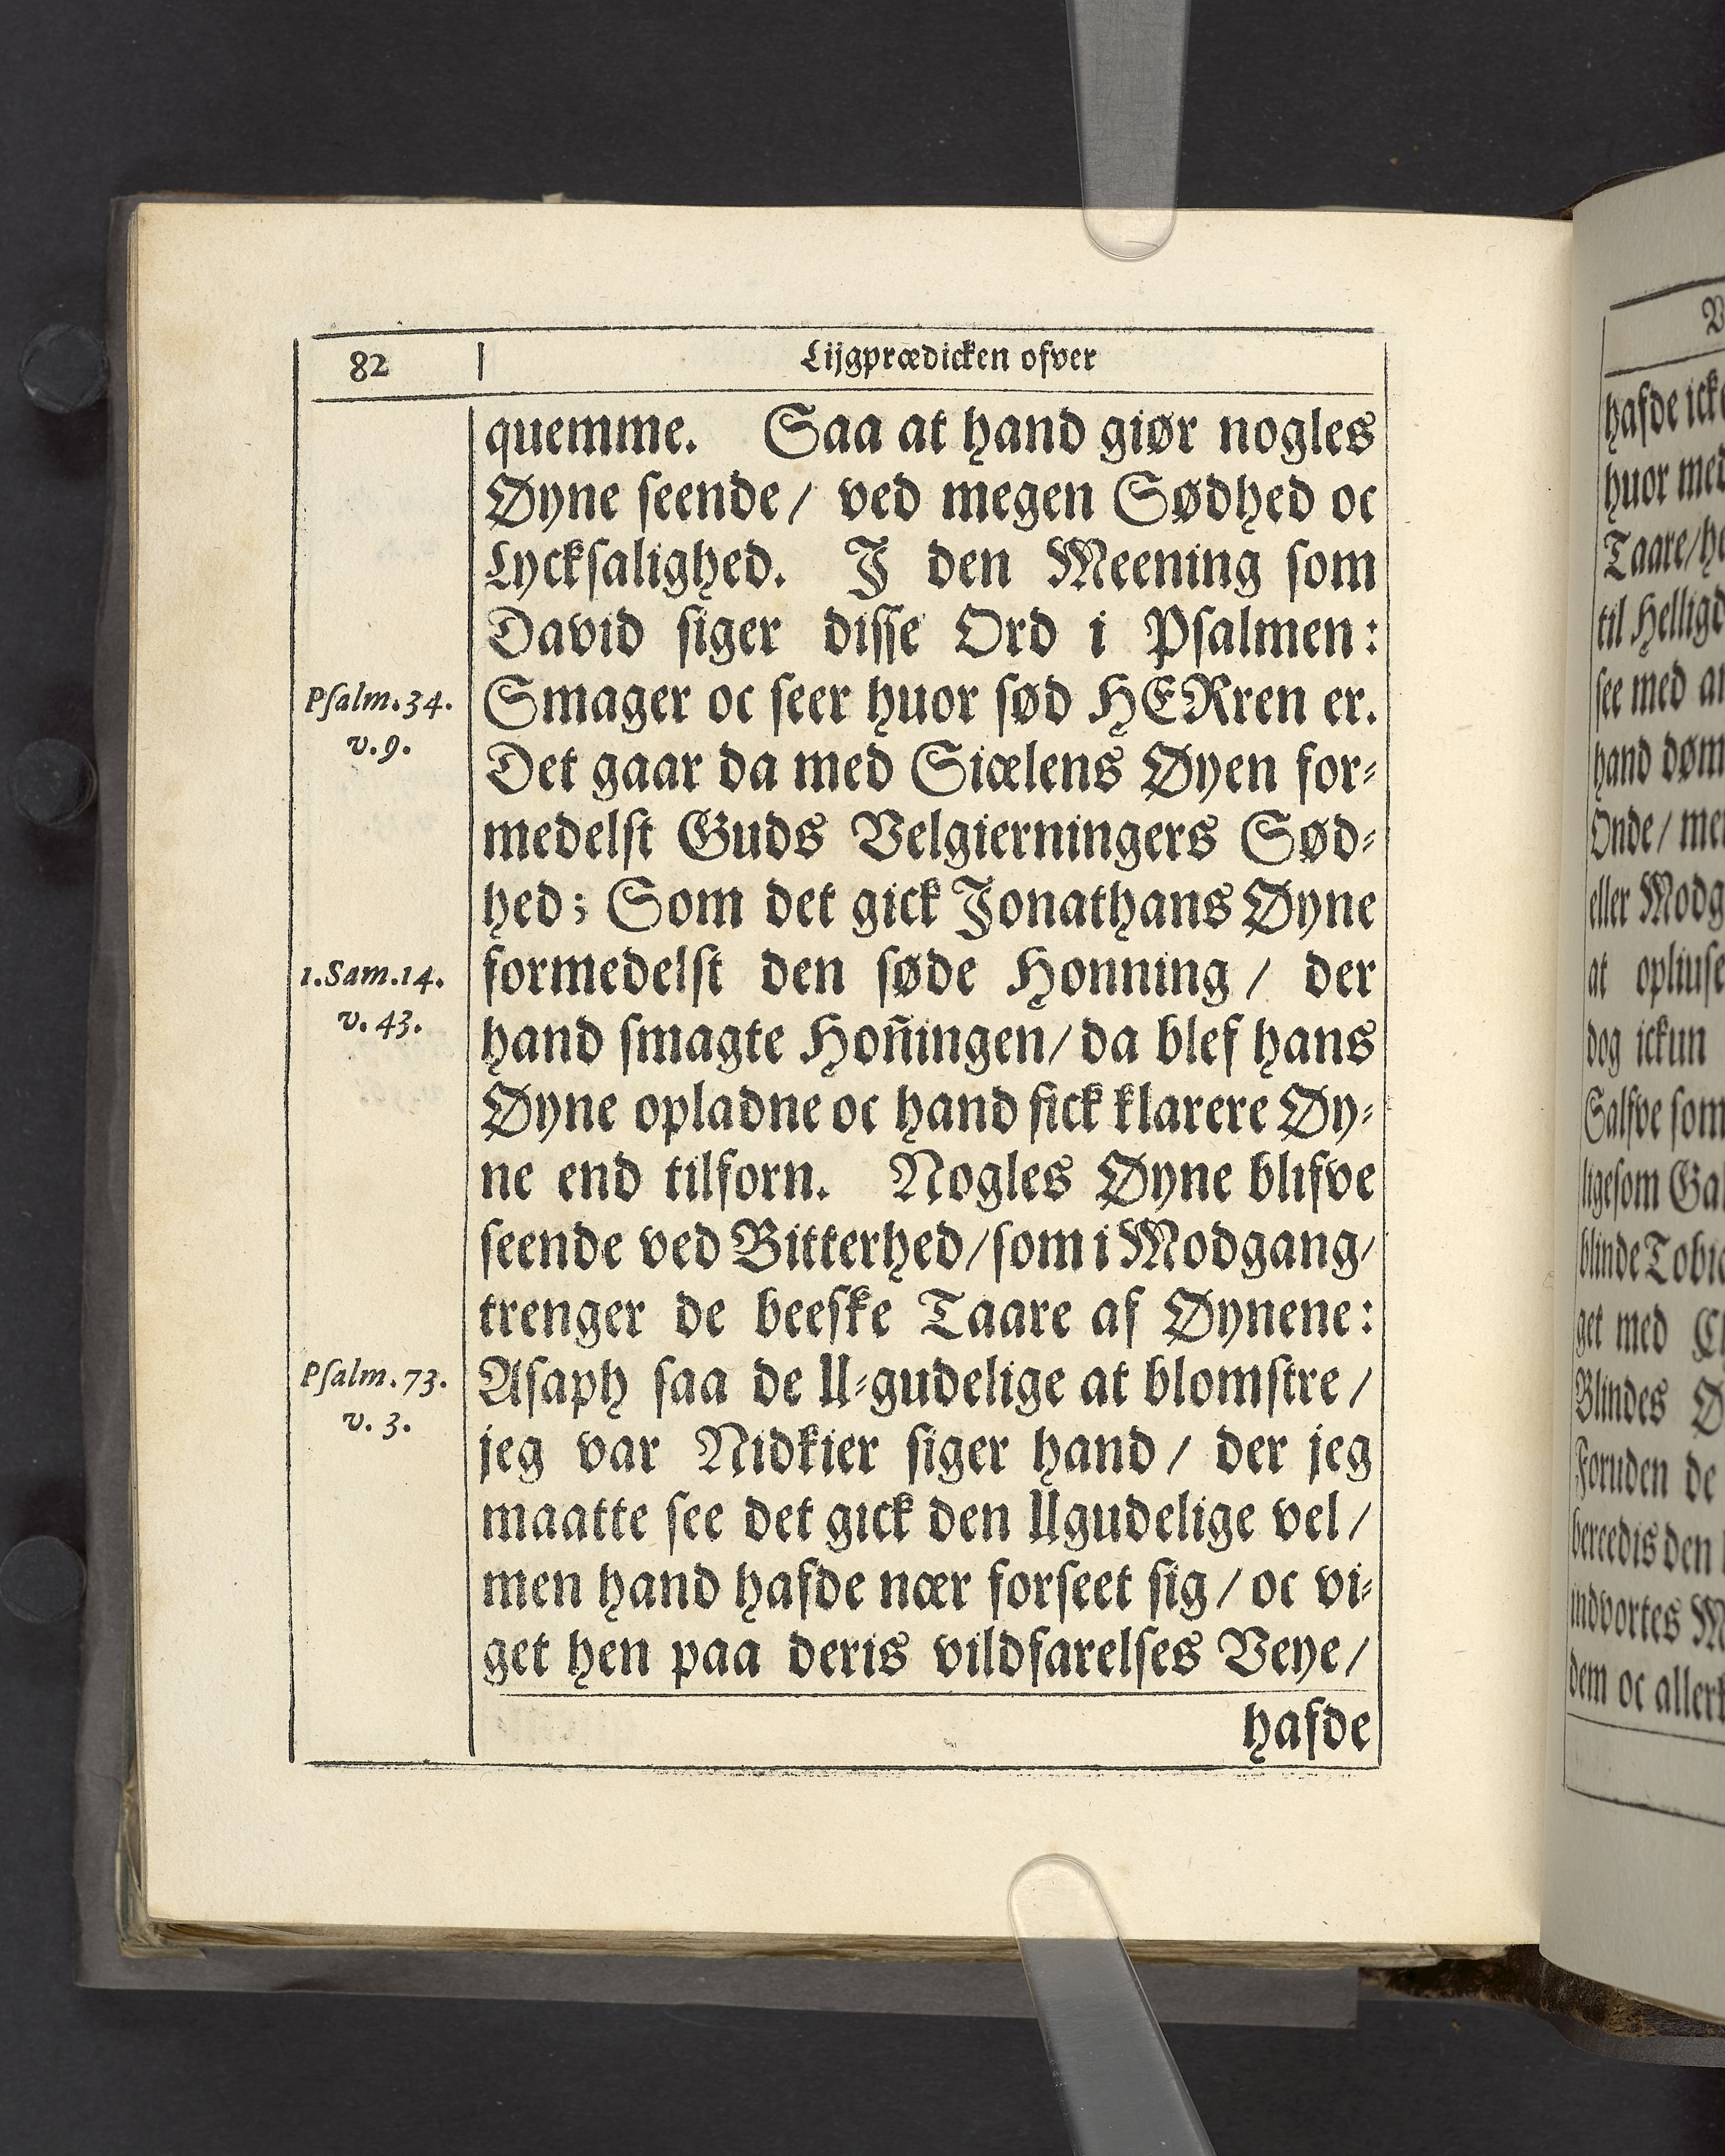 82
Lijgprædicken ofver
quemme. Saa at hand giør nogles
Øyne seende/ ved megen Sødhed oc
Lycksalighed. J den Meening som
David siger disse Ord i Psalmen:
Psalm.34.
v.9.
Smager oc seer huor sød HERren er.
Det gaar da med Siælens Øyen for-
medelst Guds Velgierningers Sød-
hed; Som det gick Jonathans Øyne
1.Sam.14.
v.43.
formedelst den søde Honning / der
hand smagte Hon̄ingen/ da blef hans
Øyne opladne oc hand fick klarere Øy-
ne end tilforn. Nogles Øyne blifve
seende ved Bitterhed/ som i Modgang/
trenger de beeske Taare af Øynene:
Psalm.73.
v.3.
Asaph saa de U-gudelige at blomstre /
jeg var Nidkier siger hand / der jeg
maatte see det gick den Ugudelige vel /
men hand hafde nær forseet sig / oc vi-
get hen paa deris vildfarelses Veye /
hafde
hafde
huor med
Taare/
til
see med
hand
Onde/
eller
at
dog ickun
Salfve som
ligesom
blinde
get med
Blindes
Foruden de
beredis den
indvortes
dem oc